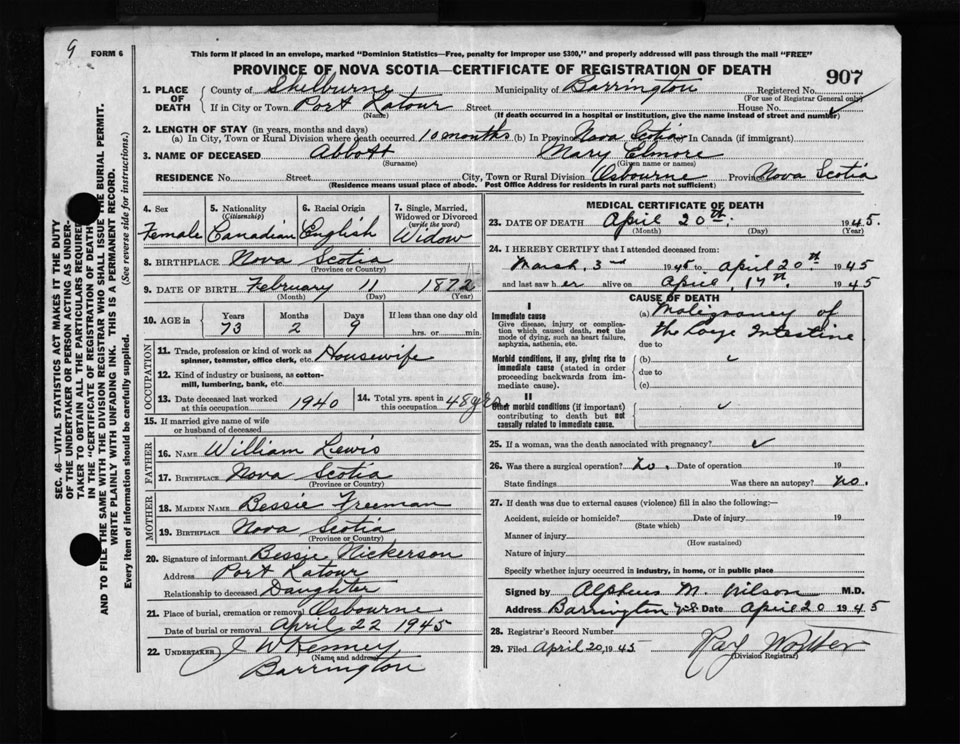 9
FORM 6
This form if placed in an envelope, marked "Dominion Statistics—Free, penalty for improper use $300," and properly addressed will pass through the mail "FREE"
PROVINCE OF NOVA SCOTIA—CERTIFICATE OF REGISTRATION OF DEATH
907
1. PLACE OF DEATH
County of Shelburne Municipality of Barrington Registered No.
(For use of Registrar General only)
If in City or Town Port Latour Street House No.
(Name) (If death occurred in a hospital or institution, give the name instead of street and number)
2. LENGTH OF STAY (in years, months and days)
(a) In City, Town or Rural Division where death occurred 10 months (b) In Province Nova Scotia (c) In Canada (if immigrant)
3. NAME OF DECEASED Abbott Mary Elmore
(Surname) (Given name or names)
RESIDENCE No. Street City, Town or Rural Division Osbourne Province Nova Scotia
(Residence means usual place of abode. Post Office Address for residents in rural parts not sufficient)
4. Sex
Female
5. Nationality
(Citizenship)
Canadian
6. Racial Origin
English
7. Single, Married,
Widowed or Divorced
(write the word)
Widow
8. BIRTHPLACE Nova Scotia
(Province or Country)
9. DATE OF BIRTH February 11 1872
(Month) (Day) (Year)
10. AGE in
Years Months Days If less than one day old
73 2 9 hrs. or min.
OCCUPATION
11. Trade, profession or kind of work as Housewife
spinner, teamster, office clerk, etc.
12. Kind of industry or business, as cotton-
mill, lumbering, bank, etc.
13. Date deceased last worked
at this occupation 1940
14. Total yrs. spent in
this occupation 48 yrs
15. If married give name of wife
or husband of deceased
FATHER
16. Name William Lewis
17. Birthplace Nova Scotia
(Province or Country)
MOTHER
18. Maiden Name Bessie Freeman
19. Birthplace Nova Scotia
(Province or Country)
20. Signature of informant Bessie Nickerson
Address Port Latour
Relationship to deceased Daughter
21. Place of burial, cremation or removal Osbourne
Date of burial or removal April 22 1945
22. Undertaker J W Kenney
(Name and address)
Barrington
MEDICAL CERTIFICATE OF DEATH
23. DATE OF DEATH April 20th. 1945.
(Month) (Day) (Year)
24. I HEREBY CERTIFY that I attended deceased from:
March, 3rd 1945 to April 20th 1945
and last saw her alive on April, 17th. 1945
CAUSE OF DEATH
I
Immediate cause
Give disease, injury or complica-
tion which caused death, not the
mode of dying, such as heart failure,
asphyxia, asthenia, etc.
(a) Malignancy of
the Large Intestine
due to
Morbid conditions, if any, giving rise to
immediate cause (stated in order
proceeding backwards from im-
mediate cause).
(b)
due to
(c)
II
Other morbid conditions (if important)
contributing to death but not
causally related to immediate cause.
25. If a woman, was the death associated with pregnancy?
26. Was there a surgical operation? no. Date of operation 19
State findings Was there an autopsy? no.
27. If death was due to external causes (violence) fill in also the following:—
Accident, suicide or homicide? Date of injury 19
(State which)
Manner of injury
(How sustained)
Nature of injury
Specify whether injury occurred in industry, in home, or in public place
Signed by Alpheus M. Wilson M.D.
Address Barrington Date April 20 1945
28. Registrar's Record Number
29. Filed April 20, 1945
(Division Registrar)
SEC. 46—VITAL STATISTICS ACT MAKES IT THE DUTY
OF THE UNDERTAKER OR PERSON ACTING AS UNDER-
TAKER TO OBTAIN ALL THE PARTICULARS REQUIRED
IN THE "CERTIFICATE OF REGISTRATION OF DEATH"
AND TO FILE THE SAME WITH THE DIVISION REGISTRAR WHO SHALL ISSUE THE BURIAL PERMIT.
WRITE PLAINLY WITH UNFADING INK. THIS IS A PERMANENT RECORD.
Every item of information should be carefully supplied. (See reverse side for instructions.)